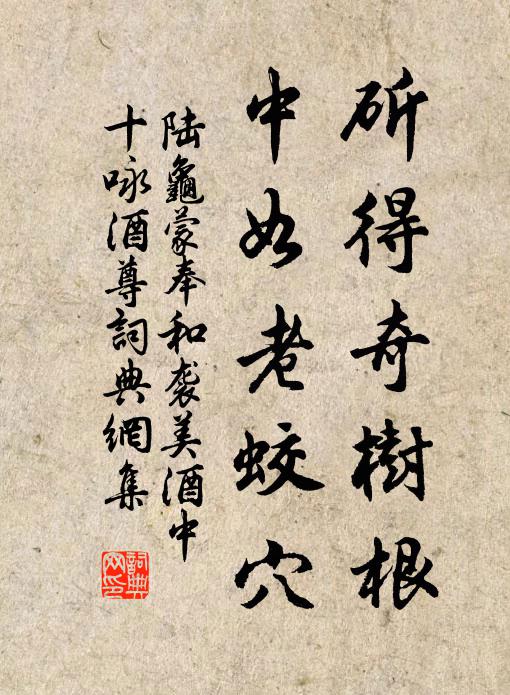 斫得奇樹根
中如老蛟穴
陆龜蒙奉和袭美酒中
十咏酒尊詞典網集
詞典
网印